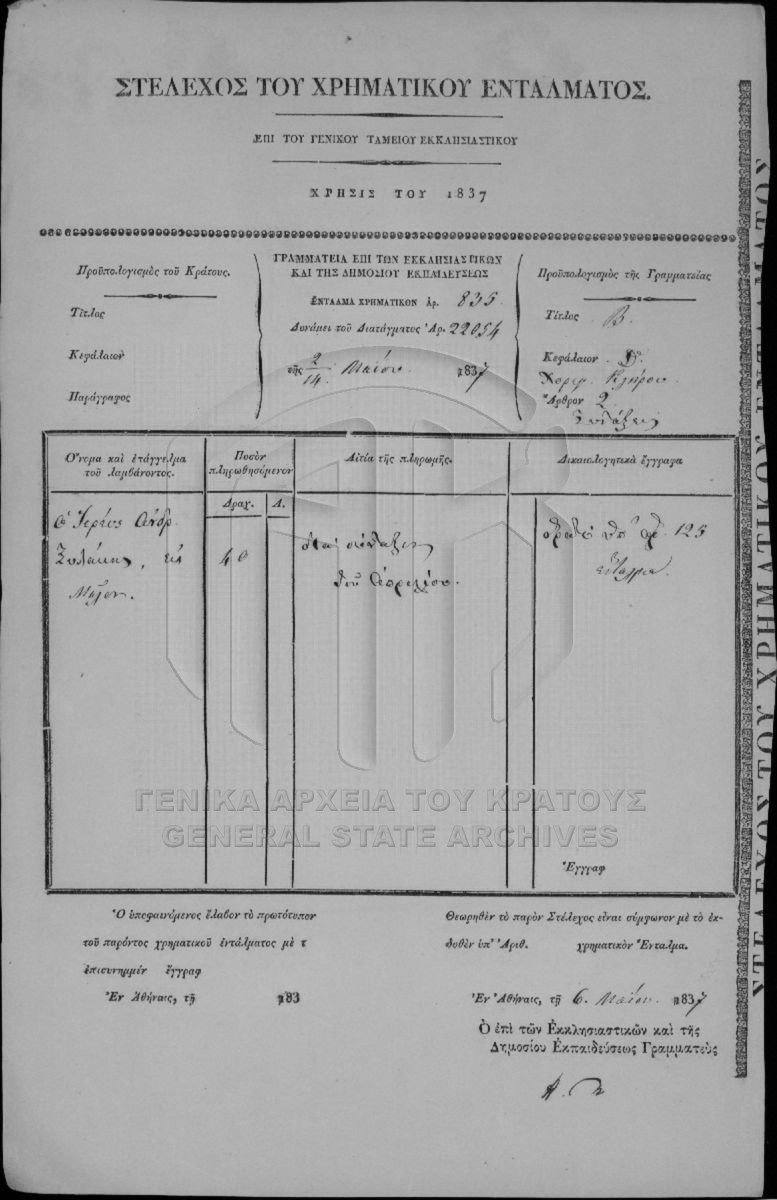 ΣΤΕΛΕΧΟΣ ΤΟΥ ΧΡΗΜΑΤΙΚΟΥ ΕΝΤΑΛΜΑΤΟΣ.
ΕΠΙ ΤΟΥ ΓΕΝΙΚΟΥ ΤΑΜΕΙΟΥ ΕΚΚΛΗΣΙΑΣΤΙΚΟΥ
ΧΡΗΣΙΣ ΤΟΥ 1837
Προϋπολογισμὸς τοῦ Κράτους.
Τίτλος
Κεφάλαιον
Παράγραφος
ΓΡΑΜΜΑΤΕΙΑ ΕΠΙ ΤΩΝ ΕΚΚΛΗΣΙΑΣΤΙΚΩΝ
ΚΑΙ ΤΗΣ ΔΗΜΟΣΙΟΥ ΕΚΠΑΙΔΕΥΣΕΩΣ
ΕΝΤΑΛΜΑ ΧΡΗΜΑΤΙΚΟΝ Ἀρ. 835.
Δυνάμει τοῦ Διατάγματος Ἀρ. 22054
τῆς 2/14 Μαΐου 1837
Προϋπολογισμὸς τῆς Γραμματείας
Τίτλος Β.
Κεφάλαιον
Κλήρου
Ἄρθρον 2
Συντάξεις
Ὄνομα καὶ ἐπάγγελμα
τοῦ λαμβάνοντος.
Ποσὸν
πληρωθησόμενον
Δραχ. Λ.
Αἰτία τῆς πληρωμῆς.
Δικαιολογητικὰ ἔγγραφα
Ὁ Ἱερεὺς Ἀνδρ.
εἰς
40
διὰ σύνταξιν
τοῦ Ἀπριλίου.
ὑπ' ἀρ. 125
ἔνταλμα.
Ἔγγραφ
Ὁ ὑπεφαινόμενος ἔλαβον τὸ πρωτότυπον
τοῦ παρόντος χρηματικοῦ ἐντάλματος μὲ τ
ἐπισυνημμέν ἔγγραφ
Ἐν Ἀθήναις, τῇ 183
Θεωρηθὲν τὸ παρὸν Στέλεχος εἶναι σύμφωνον μὲ τὸ ἐκ-
δοθὲν ὑπ' Ἀριθ. χρηματικὸν Ἔνταλμα.
Ἐν Ἀθήναις, τῇ 6. Μαΐου. 1837
Ὁ ἐπὶ τῶν Ἐκκλησιαστικῶν καὶ τῆς
Δημοσίου Ἐκπαιδεύσεως Γραμματεὺς
ΣΤΕΛΕΧΟΣ ΤΟΥ ΧΡΗΜΑΤΙΚΟΥ ΕΝΤΑΛΜΑΤΟΣ
ΓΕΝΙΚΑ ΑΡΧΕΙΑ ΤΟΥ ΚΡΑΤΟΥΣ
GENERAL STATE ARCHIVES